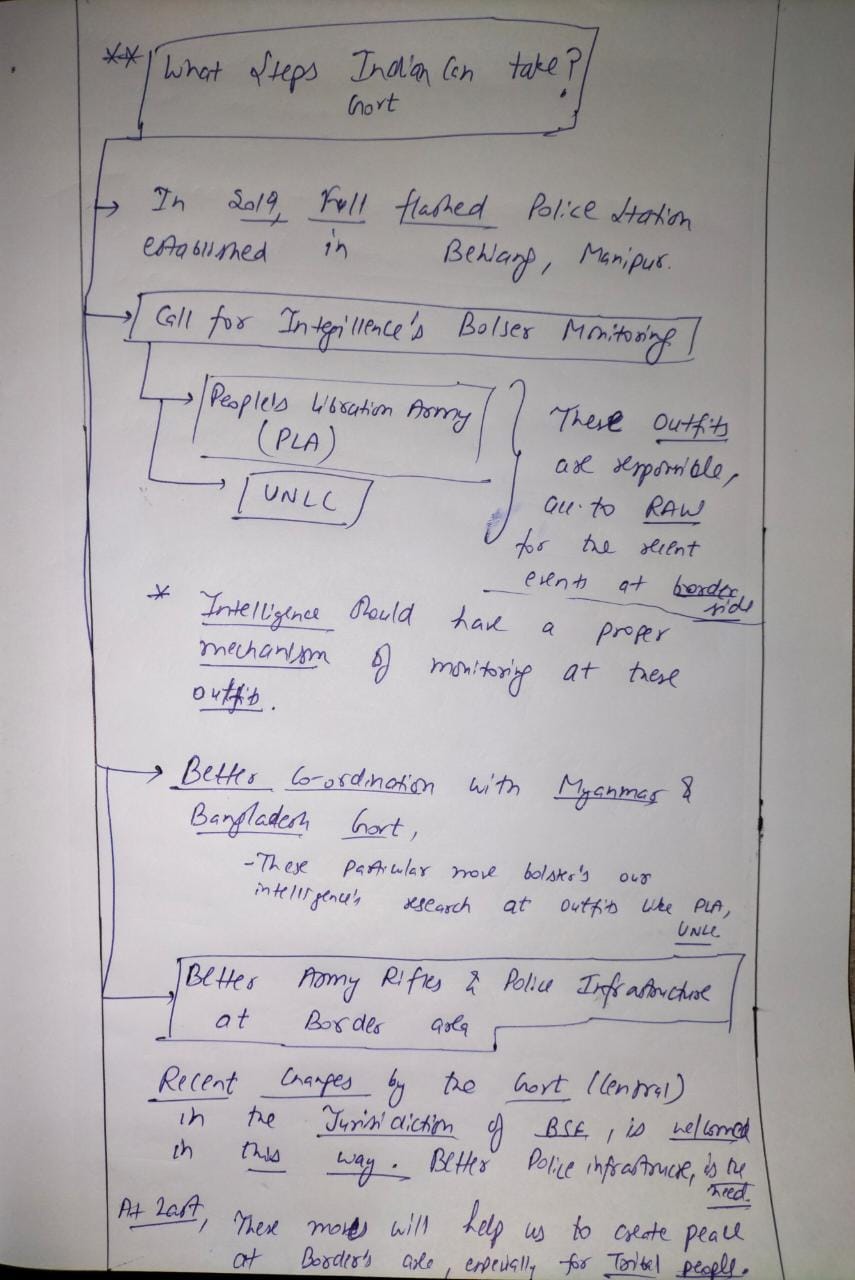 ** What Steps Indian Can take?
Govt
→ In 2019, Full flashed Police Station
established in Behiang, Manipur.
Call for Integillence's Bolser Monitoring
People's Libration Army
(PLA)
UNLC
These outfits
are responsible,
acc. to RAW
for the recent
events at border
side
* Intelligence Should have a proper
mechanism of monitoring at these
outfits.
→ Better Co-ordination with Myanmar &
Bangladesh Govt,
- These particular move bolster's our
intelligence's research at outfits like PLA,
UNLC
Better Army Rifles & Police Infrastructure
at Border area
Recent Changes by the Govt (Central)
in the Jurisidiction of BSF, is welcomed
in this way. Better Police infrastrucre, is the
need.
At Last, These moves will help us to create peace
at Border's area, especially for Tribal people.